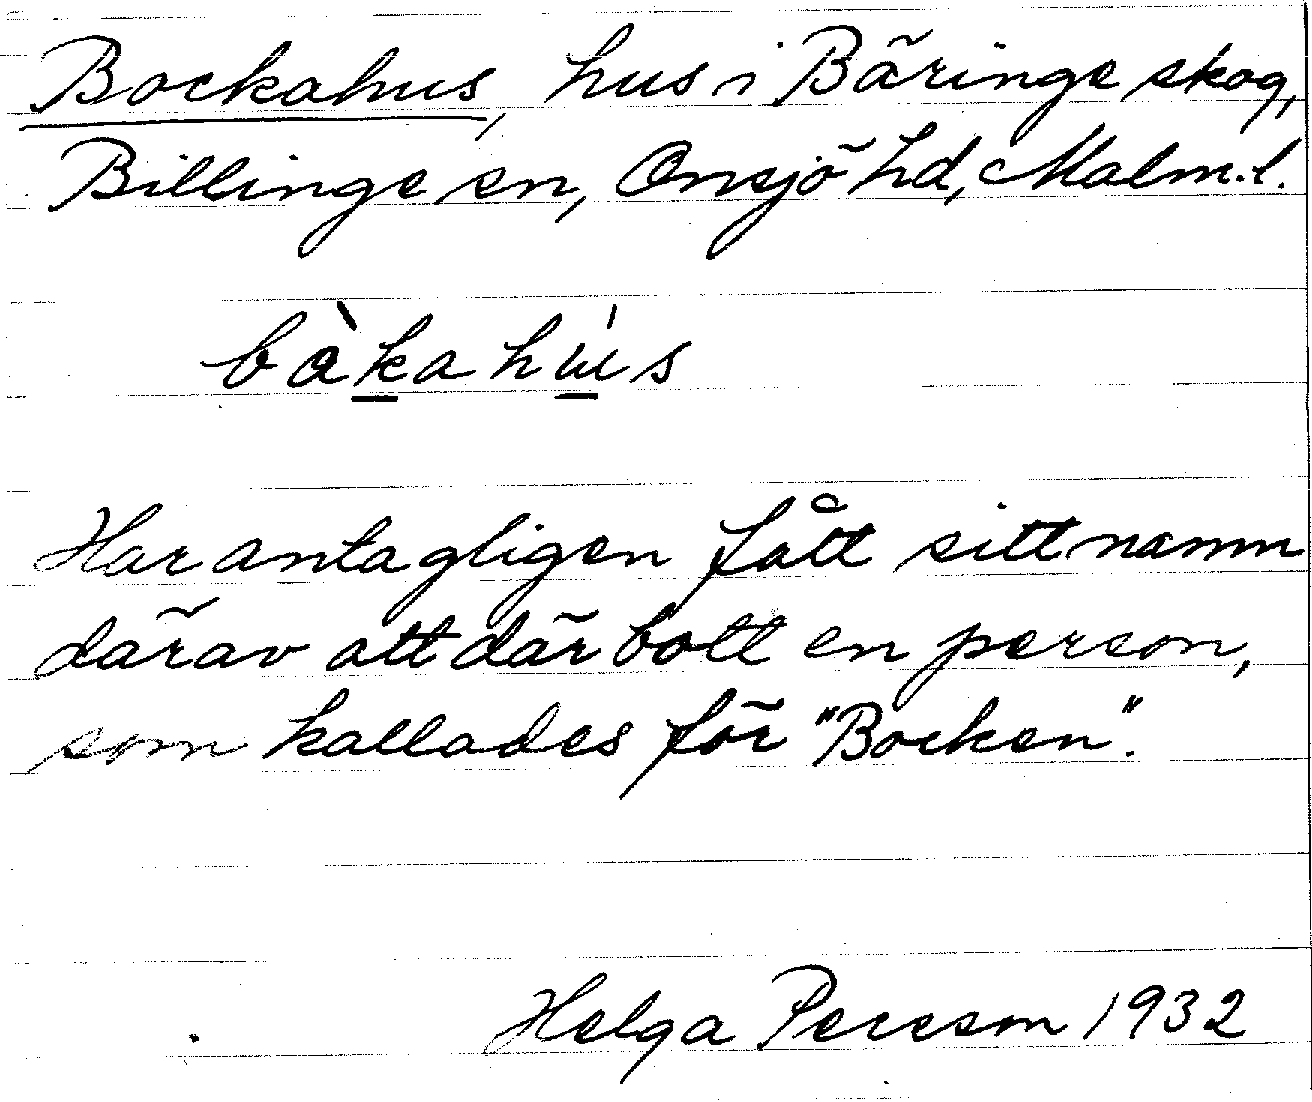 Bockahus, hus i Bäringe skog,
Billinge sn, Onsjö hd, Malm.l.
bàkahús
Har antagligen fått sitt namn
därav att där bott en person,
som kallades för "Bocken".
Helga Persson 1932